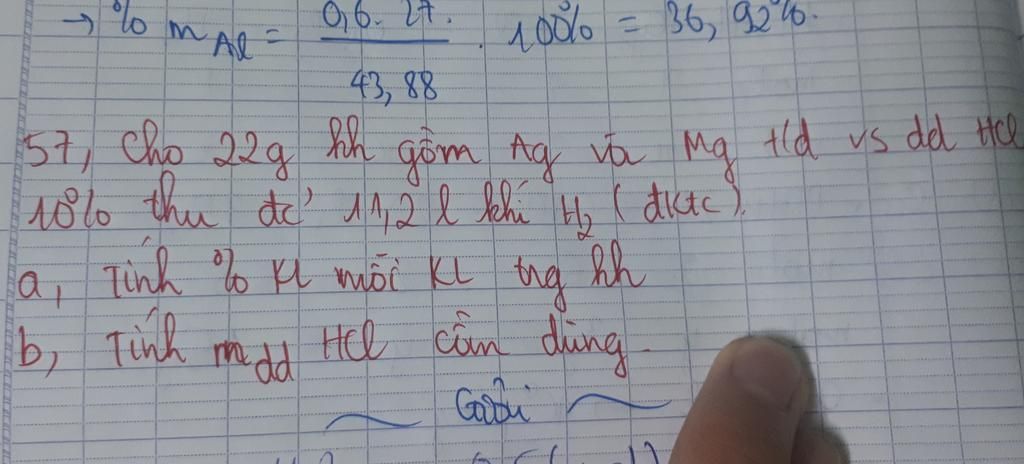 → % m Al = 0,6. 27. / 43,88 . 100% = 36, 92%.
57, Cho 22g hh gồm Ag và Mg t/d vs dd HCl
10% thu đc' 11,2 l khí H2 ( đktc).
a, Tính % KL mỗi KL trg hh
b, Tính mdd HCl cần dùng.
~ Giải ~